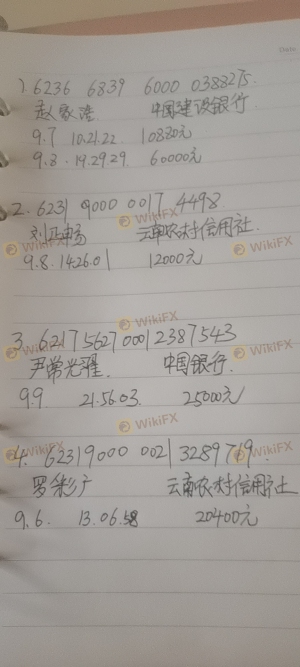 1) 6236 6839 6000 0388275
赵家浩 中国建设银行
9.7 10.21.22 10830元
9.8.19.29.29. 60000元
2. 6231 9000 0017 4498
云南农村信用社.
9.8.14.26.01 12000元
3. 6217562700012387543
尹常光耀. 中国银行.
9.9 21.56.03. 25000元
4. 6231 9000 0021 3289719.
罗彩广 云南农村信用社
9.6. 13.06.58 20400元
WikiFX
WikiFX
WikiFX
WikiFX
WikiFX
WikiFX
WikiFX
WikiFX
WikiFX